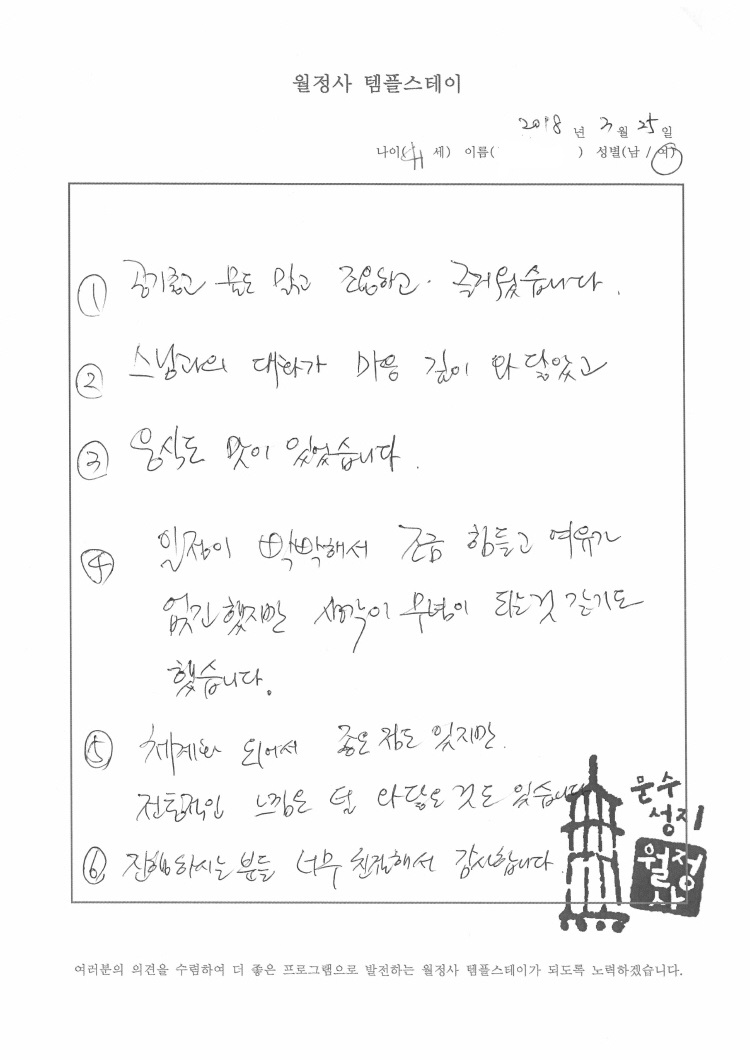 월정사 템플스테이
2018 년 3 월 25 일
나이( 세) 이름( ) 성별(남 / 여)
① 공기좋고 물도 맑고 조용하고· 즐거웠습니다.
② 스님과의 대화가 마음 깊이 와 닿았고
③ 음식도 맛이 있었습니다.
④ 일정이 빡빡해서 조금 힘들고 여유가
없긴 했지만 생각이 무념이 되는것 같기도
했습니다.
⑤ 체계화 되어서 좋은 점도 있지만.
전통적인 느낌은 덜 와닿은 것도 있습니다
⑥ 진행하시는 분들 너무 친절해서 감사합니다.
문수
성지
월정
사
여러분의 의견을 수렴하여 더 좋은 프로그램으로 발전하는 월정사 템플스테이가 되도록 노력하겠습니다.